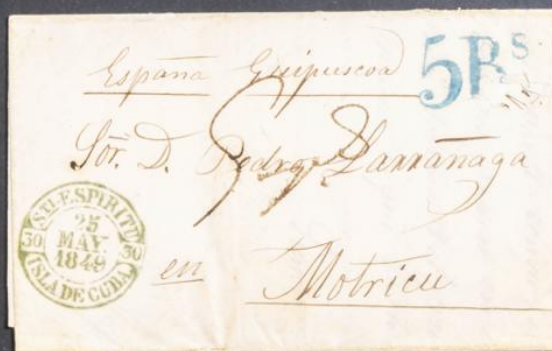 España Guipuscoa
5 Rs
Sõr. D. Pedro Larrãnaga
en Motricu
STI-ESPIRITU
25
MAY
1849
30 30
ISLA DE CUBA